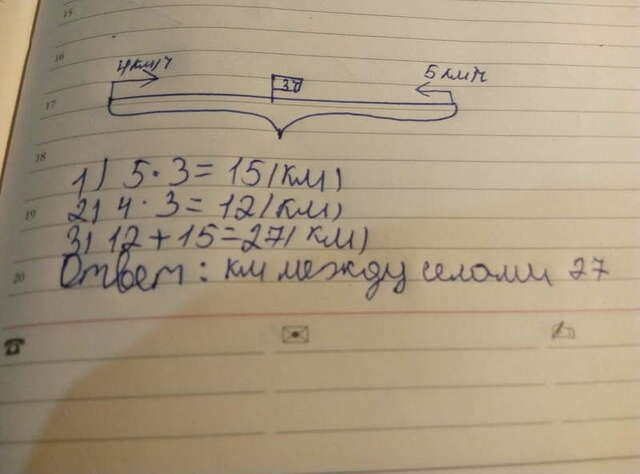 15
16
4км/ч
3ч
5 км/ч
17
18
1) 5 · 3 = 15 (км)
19
2) 4 · 3 = 12 (км)
3) 12 + 15 = 27 (км)
20
Ответ: км между селами 27